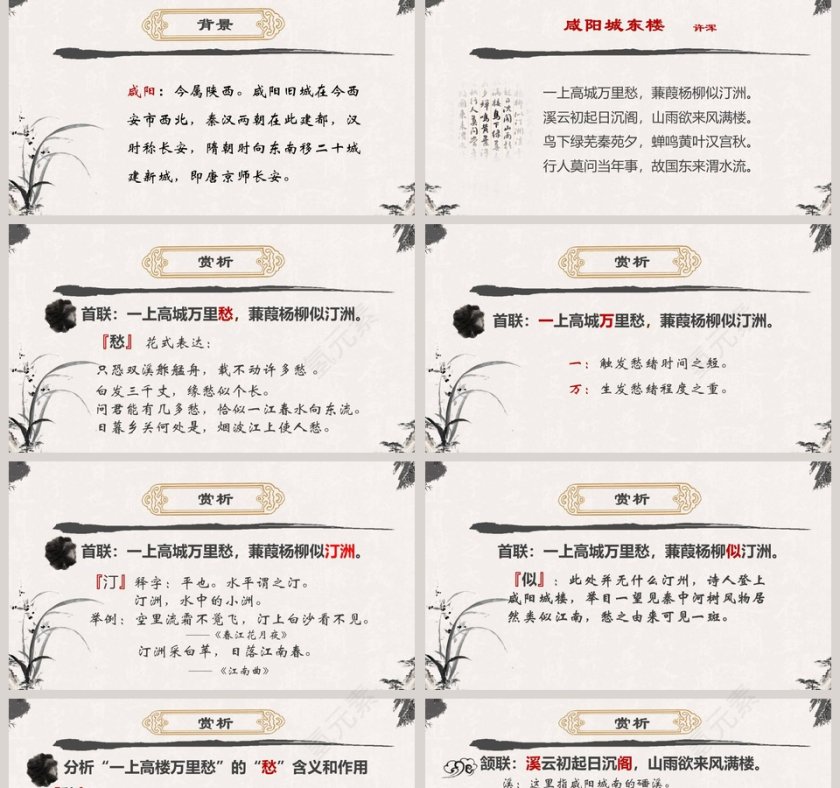 背景
咸阳：今属陕西。咸阳旧城在今西
安市西北，秦汉两朝在此建都，汉
时称长安，隋朝时向东南移二十城
建新城，即唐京师长安。
咸阳城东楼 许浑
一上高城万里愁，蒹葭杨柳似汀洲。
溪云初起日沉阁，山雨欲来风满楼。
鸟下绿芜秦苑夕，蝉鸣黄叶汉宫秋。
行人莫问当年事，故国东来渭水流。
赏析
首联：一上高城万里愁，蒹葭杨柳似汀洲。
『愁』花式表达：
只恐双溪舴艋舟，载不动许多愁 。
白发三千丈，缘愁似个长。
问君能有几多愁，恰似一江春水向东流。
日暮乡关何处是，烟波江上使人愁。
赏析
首联：一上高城万里愁，蒹葭杨柳似汀洲。
一：触发愁绪时间之短。
万：生发愁绪程度之重。
赏析
首联：一上高城万里愁，蒹葭杨柳似汀洲。
『汀』释字：平也。水平谓之汀。
汀洲，水中的小洲。
举例：空里流霜不觉飞，汀上白沙看不见。
——《春江花月夜》
汀洲采白苹，日落江南春。
—— 《江南曲》
赏析
首联：一上高城万里愁，蒹葭杨柳似汀洲。
『似』：此处并无什么汀州，诗人登上
咸阳城楼，举目一望见秦中河树风物居
然类似江南，愁之由来可见一斑。
赏析
分析“一上高楼万里愁”的“愁”含义和作用
赏析
颔联：溪云初起日沉阁，山雨欲来风满楼。
溪：这里指咸阳城南的磻溪。